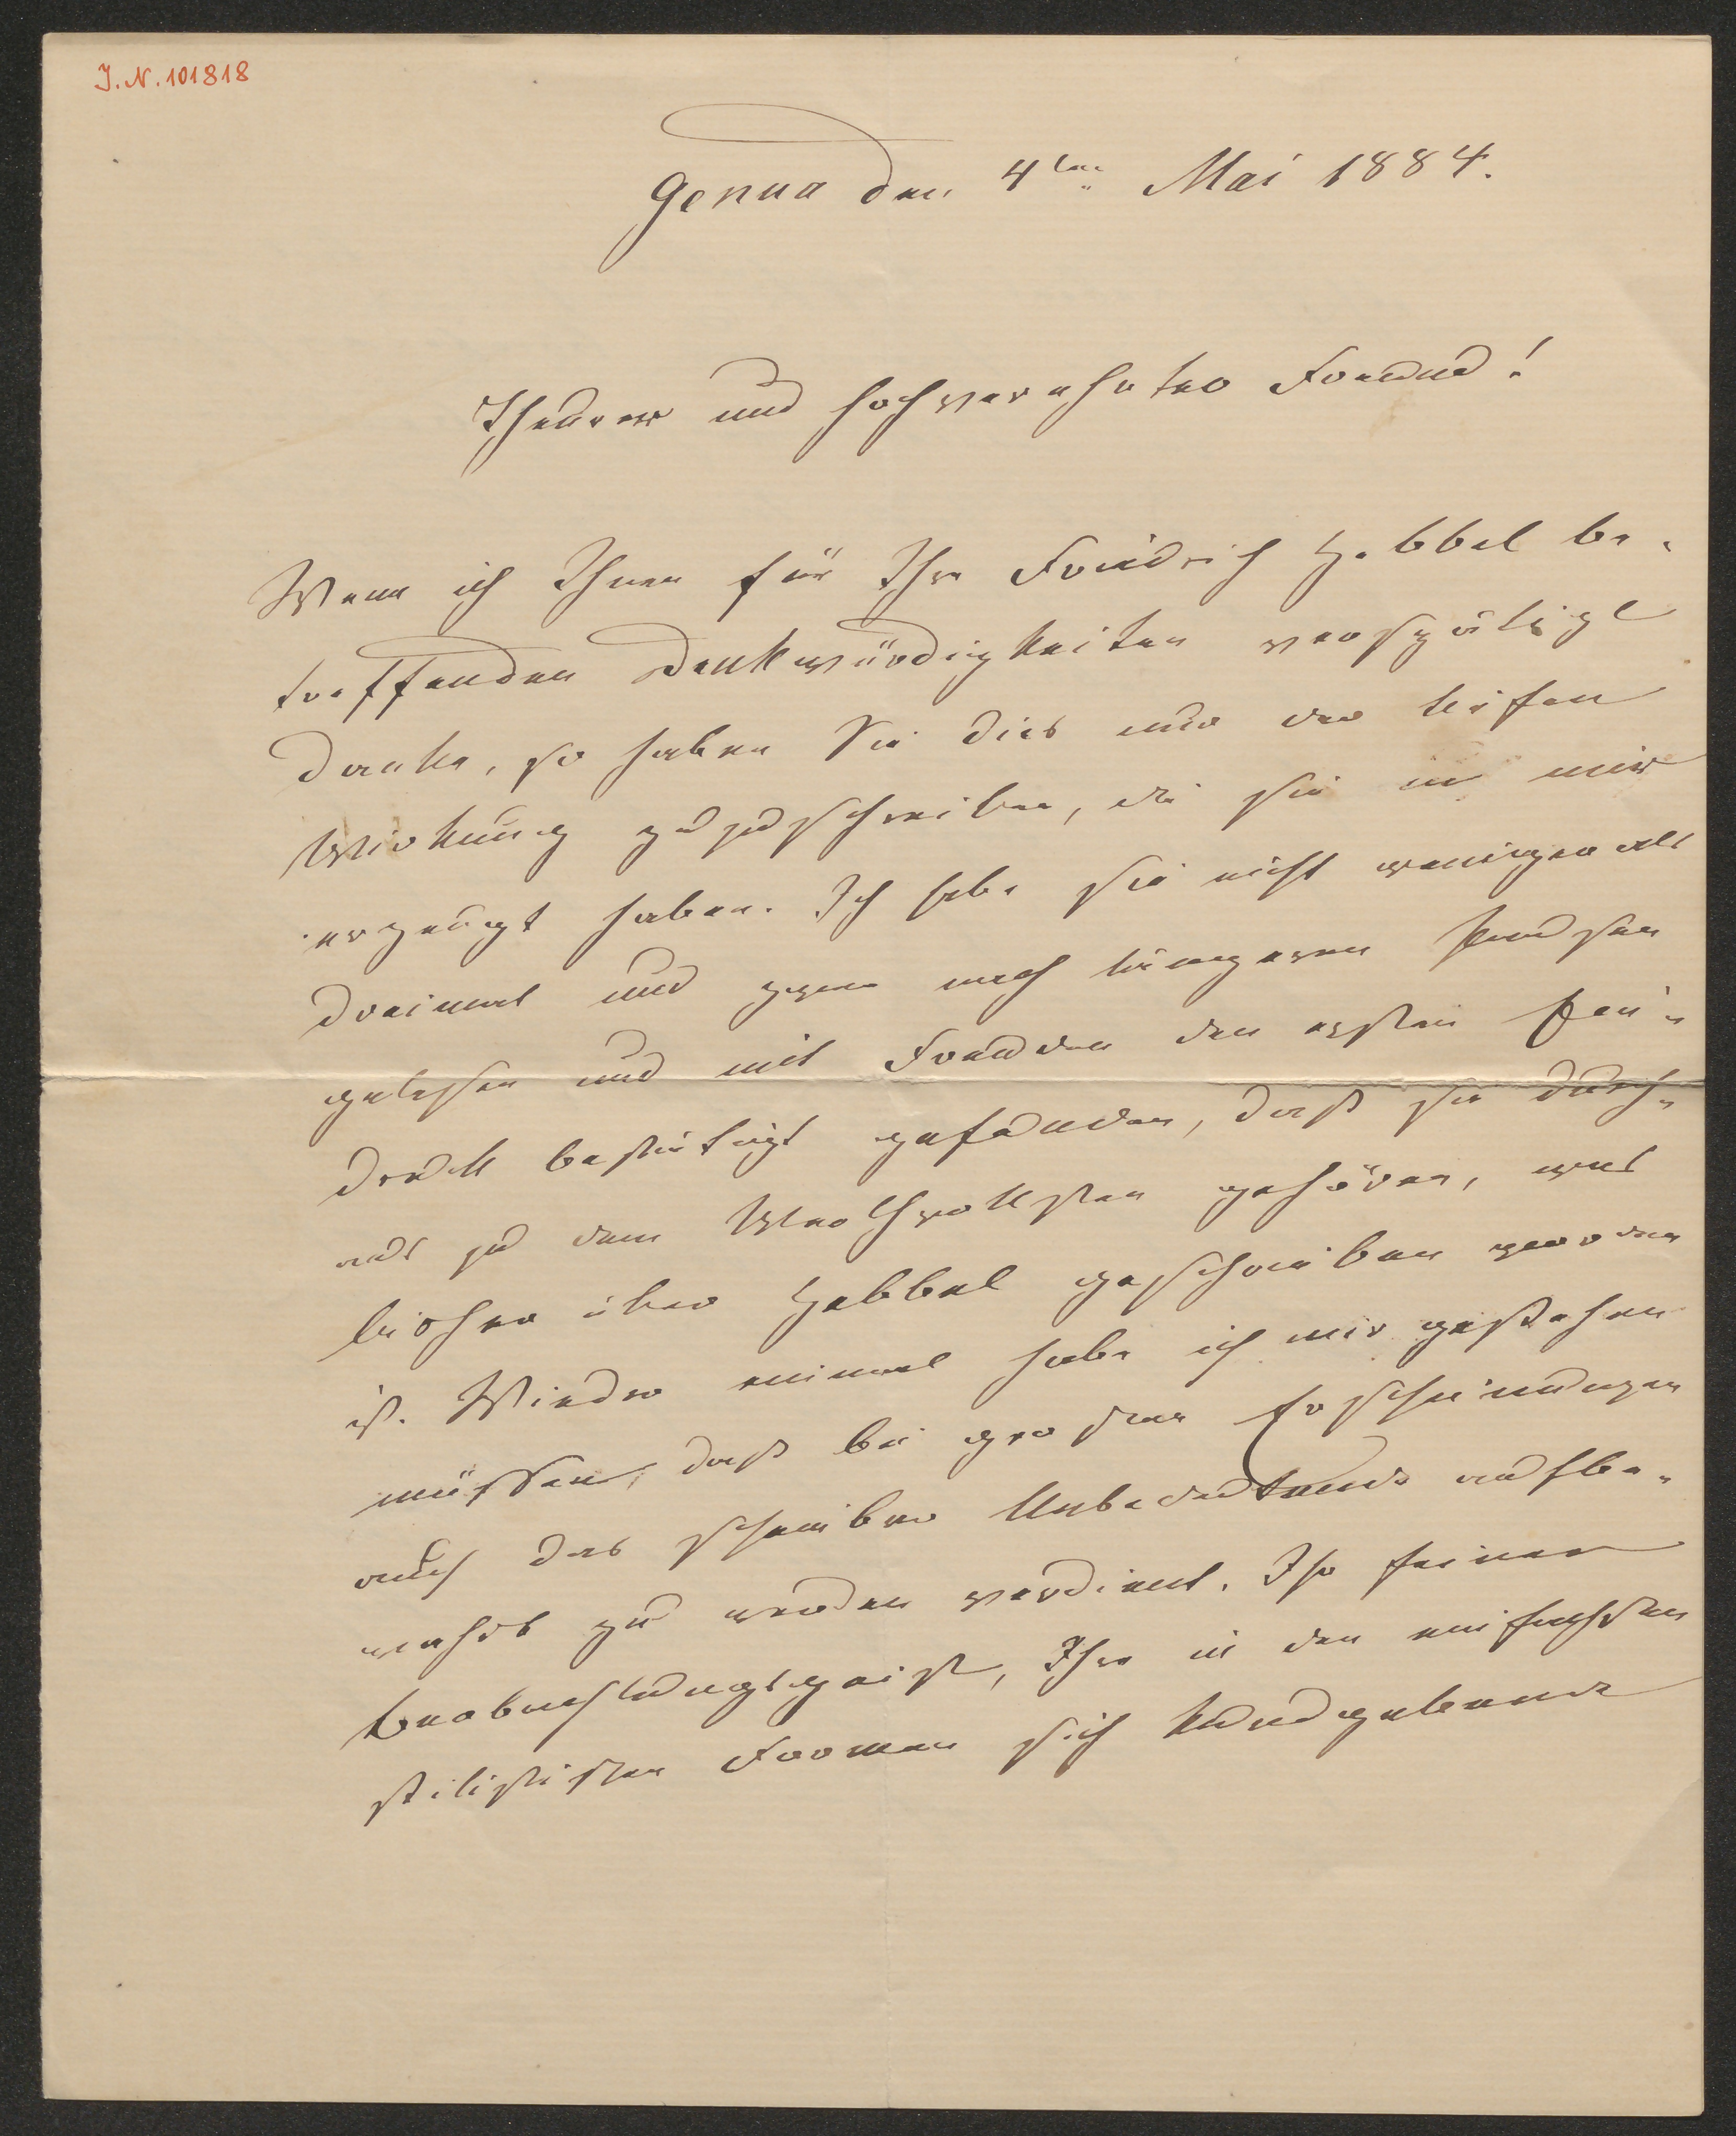 I. N. 101818
Genua den 4ten Mai 1884.
Theurer und hochverehrter Freund!
Wenn ich Ihnen für Ihre Friedrich Hebbel be-
treffenden Denkwürdigkeiten verspätigt
danke, so haben Sie dies nur der tiefen
Wirkung zuzuschreiben, die sie in mir
erzeugt haben. Ich habe sie nicht weniger als
dreimal und zwar nach längeren Pausen
gelesen und mit Freuden den ersten Ein-
druck bestätigt gefunden, daß sie durch-
aus zu dem Werthvollsten gehören, was
bisher über Hebbel geschrieben worden
ist. Wieder einmal habe ich mir gestehen
müssen, daß bei großen Erscheinungen
auch das scheinbar Unbedeutende aufbe-
wahrt zu werden verdient. Ihr feiner
Beobachtungsgeist, Ihre in den einfachsten
stilistischen Formen sich kundgebende